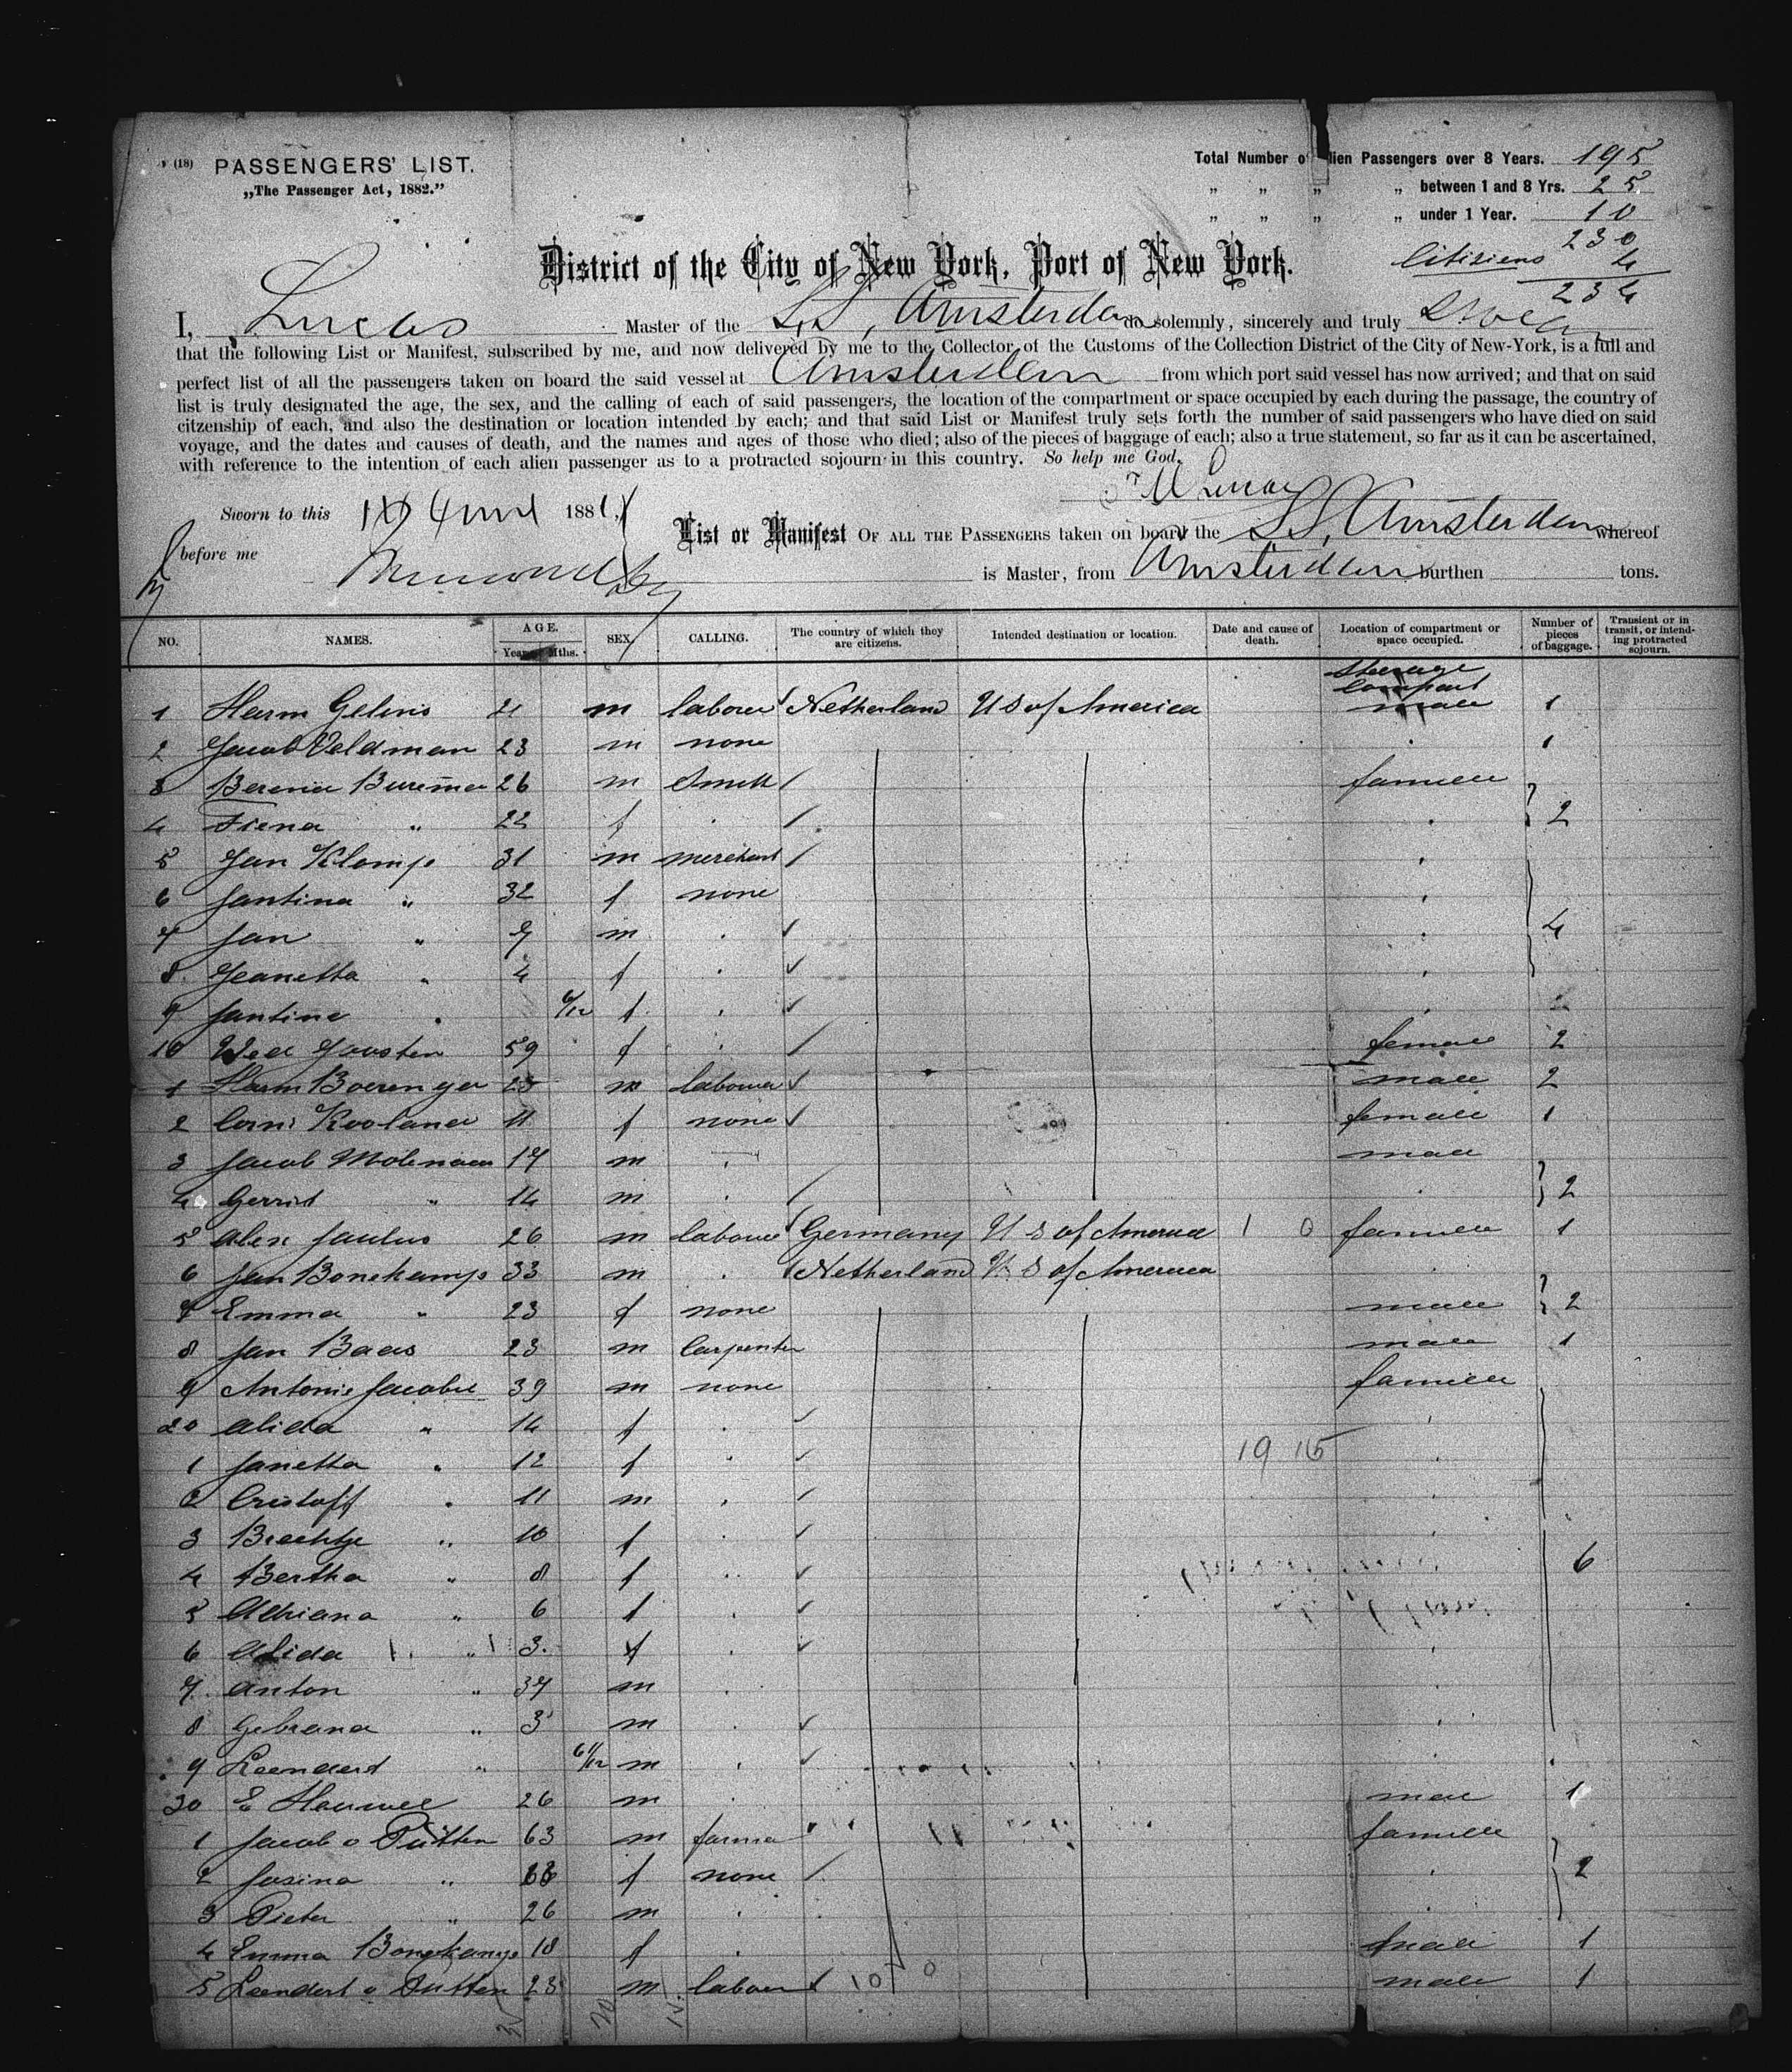 (18) PASSENGERS' LIST.
„The Passenger Act, 1882."
Total Number of Alien Passengers over 8 Years. 195
„ „ „ „ between 1 and 8 Yrs. 25
„ „ „ „ under 1 Year. 10
230
Citisiens 4
234
District of the City of New York, Port of New York.
I, Lucas Master of the S.S. Amsterdam do solemnly, sincerely and truly Swear
that the following List or Manifest, subscribed by me, and now delivered by me to the Collector of the Customs of the Collection District of the City of New-York, is a full and
perfect list of all the passengers taken on board the said vessel at Amsterdam from which port said vessel has now arrived; and that on said
list is truly designated the age, the sex, and the calling of each of said passengers, the location of the compartment or space occupied by each during the passage, the country of
citzenship of each, and also the destination or location intended by each; and that said List or Manifest truly sets forth the number of said passengers who have died on said
voyage, and the dates and causes of death, and the names and ages of those who died; also of the pieces of baggage of each; also a true statement, so far as it can be ascertained,
with reference to the intention of each alien passenger as to a protracted sojourn in this country. So help me God.
Sworn to this 188
before me
List or Manifest OF ALL THE PASSENGERS taken on board the S.S. Amsterdam whereof
is Master, from Amsterdam burthen tons.
NO. NAMES. AGE. Years Mths. SEX. CALLING. The country of which they are citizens. Intended destination or location. Date and cause of death. Location of compartment or space occupied. Number of pieces of baggage. Transient or in transit, or intending protracted sojourn.
Steerage
Compart
1 Harm Gelens 21 m labour Netherland US of America male 1
2 Jacob Veldman 23 m none 1
3 Burema 26 m Smith familie
4 Siena " 22 f 2
5 Jan Klomp 31 m merchant
6 Jantina " 32 f none
7 Jan " 7 m 4
8 Jeanetta " 4 f
9 Jantine 6/12 f
10 Wed Joosten 59 f female 2
1 Harm 25 m labour male 2
2 11 f none female 1
3 Jacob Molenaar 17 m male
4 Gerrit " 14 m 2
5 Alex Paulus 26 m labour Germany U S of America 1 0 familie 1
6 Jan Bonekamp 33 m Netherland U S of America
7 Emma " 23 f none male 2
8 Jan Baas 23 m Carpenter male 1
9 Antonie Jacobse 39 m none familie
20 Alida " 14 f
1 Janetta " 12 f 19 115
2 Cristoff 11 m
3 Brechtje " 10 f
4 Bertha " 8 f 6
5 Adriana " 6 f
6 Alida " 3 f
7 Anton " 37 m
8 Gebrana " 3 m
9 Leendert " 6/12 m
30 E 26 m male 1
1 Jacob v Putten 63 m farmer familie
2 Josina " f none 2
3 Pieter " 26 m
4 Emma Bonekamp 18 f male 1
5 Leendert v Putten 23 m labour 10 0 male 1